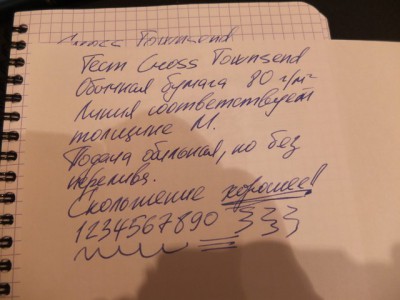 Cross Townsend
Тест Cross Townsend
Обычная бумага 80 г/м²
Линия соответствует
толщине М.
Подача обильная, но без
перелива.
Скольжение хорошее!
1234567890